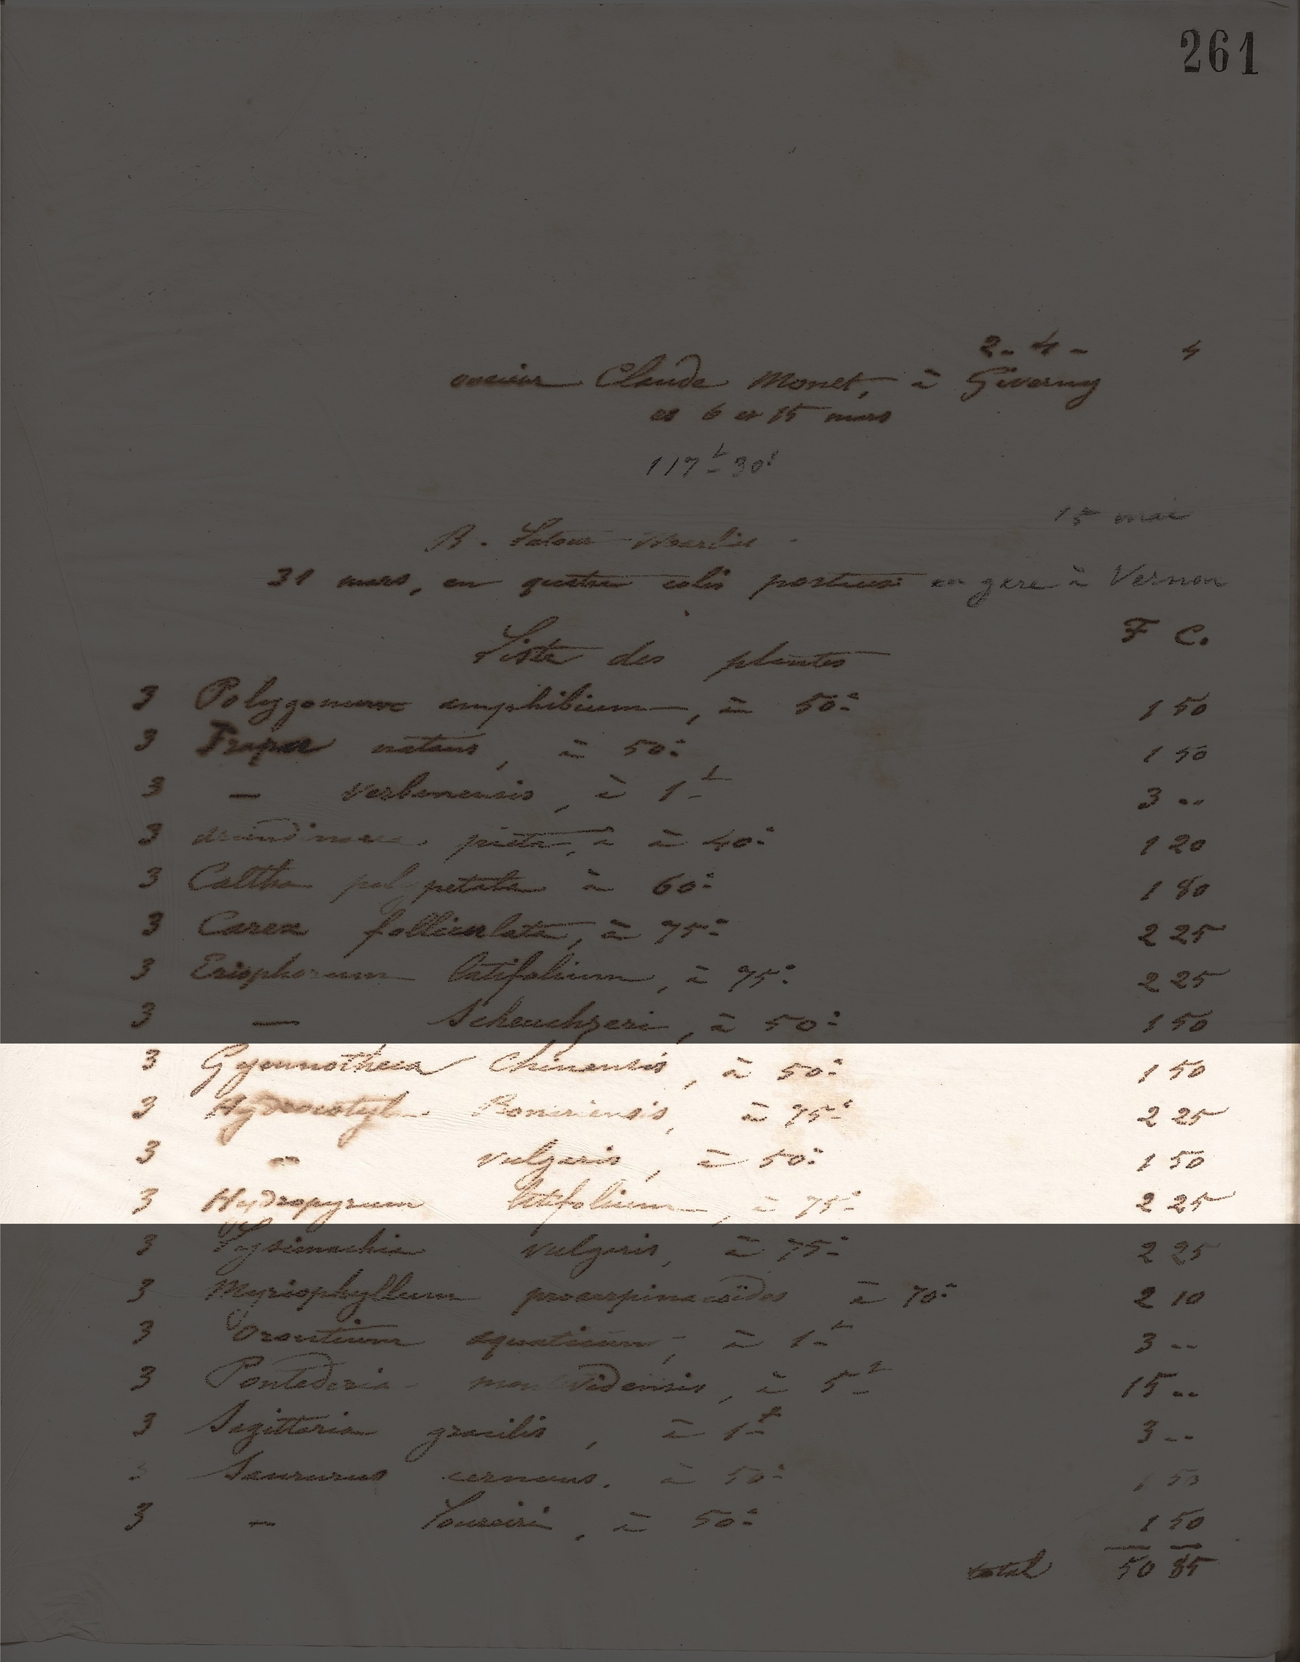 261
2 - 4 - 4
Claude Monet, à Giverny
6 et 15 mars
117 30
15 mai
B. Latour Marliac
31 mars, en quatre colis postaux en gare à Vernon
F C.
Liste des plantes
3 Polygonum amphibium, à 50c 1 50
3 Trapa natans, à 50c 1 50
3 — verbanensis, à 1f 3 --
3 picta, à 40c 1 20
3 Caltha polypetala à 60c 1 80
3 Carex folliculata, à 75c 2 25
3 Eriophorum latifolium, à 75c 2 25
3 — Scheuchzeri, à 50c 1 50
3 Gymnotheca Chinensis, à 50c 1 50
3 Hydrocotyle Bonariensis, à 75c 2 25
3 — vulgaris, à 50c 1 50
3 Hydropyrum latifolium, à 75c 2 25
3 Lysimachia vulgaris, à 75c 2 25
3 Myriophyllum proserpinacoïdes à 70c 2 10
3 Orontium aquaticum, à 1f 3 --
3 Pontederia montevidensis, à 5f 15 --
3 Sagittaria gracilis, à 1f 3 --
3 Saururus cernuus, à 50c 1 50
3 — Loureiri, à 50c 1 50
total 50 85